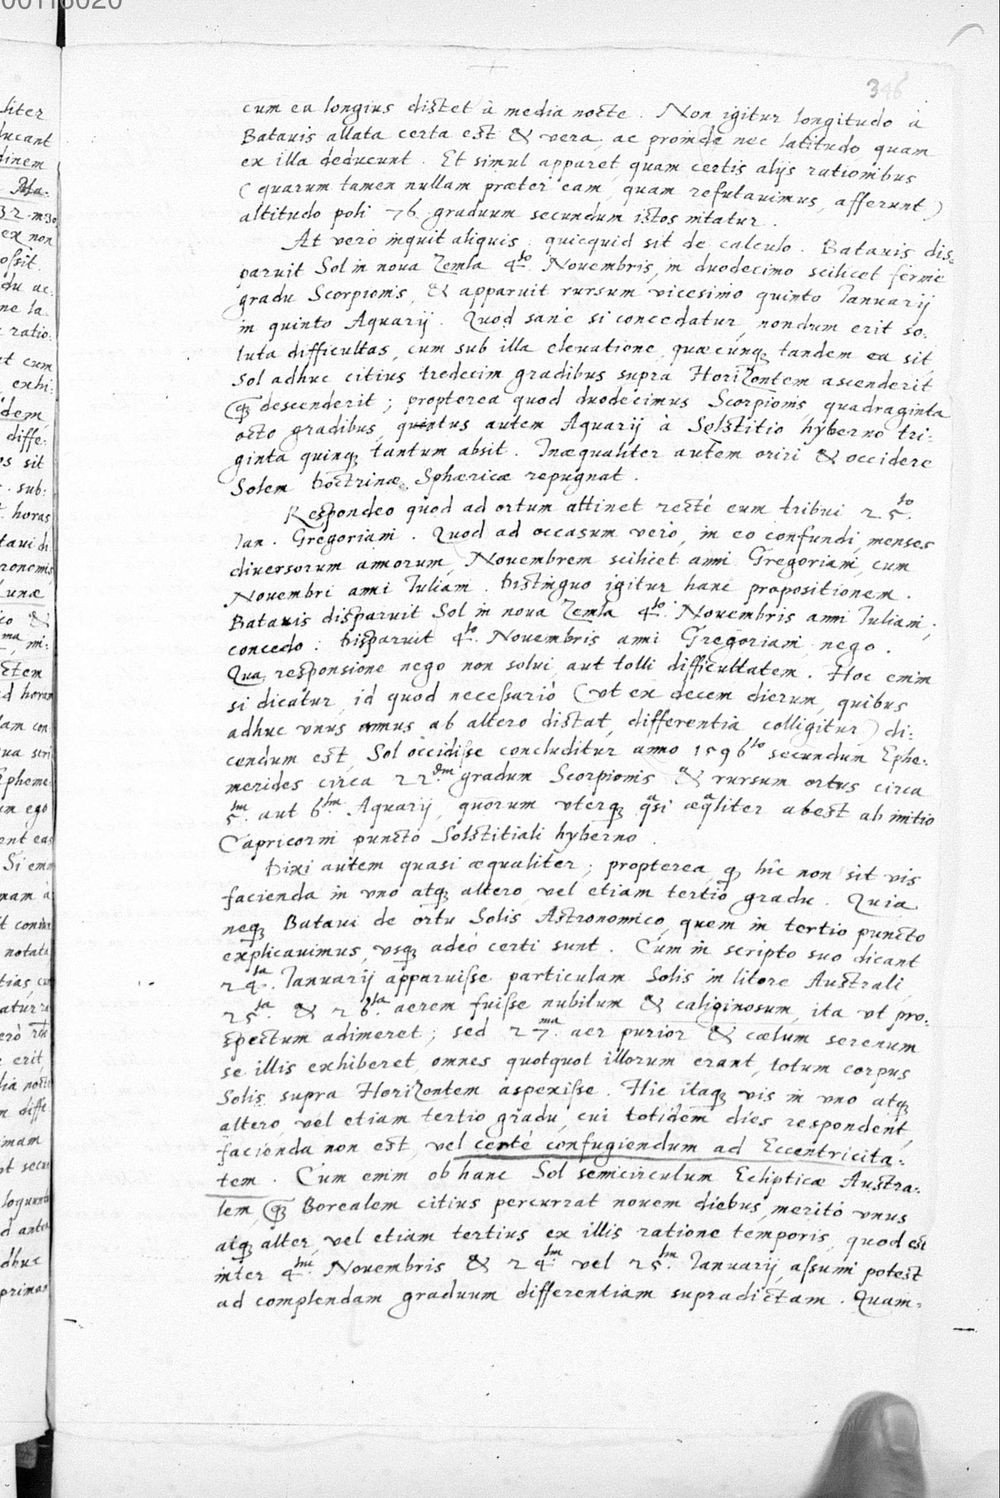 00118020
346
cum ea longius distet à media nocte. Non igitur longitudo à
Batauis allata certa est & vera, ac proinde nec latitudo, quam
ex illa deducunt. Et simul apparet, quam certis alijs rationibus
(quarum tamen nullam præter eam, quam refutauimus, afferunt)
altitudo poli 76 graduum secundum istos nitatur.
At verò inquit aliquis: quicquid sit de calculo. Batauis dis-
paruit Sol in noua Zemla 4.to Nouembris, in duodecimo scilicet fermè
gradu Scorpionis, & apparuit rursum vicesimo quinto Ianuarij
in quinto Aquarij. Quod sanè si concedatur, nondum erit so-
luta difficultas, cum sub illa eleuatione, quæcunq; tandem ea sit,
Sol adhuc citius tredecim gradibus supra Horizontem ascenderit
q̃ descenderit; propterea quod duodecimus Scorpionis, quadraginta
octo gradibus, quintus autem Aquarij à Solstitio hyberno tri-
ginta quinq; tantum absit. Inæqualiter autem oriri & occidere
Solem Doctrinæ Sphæricæ repugnat.
Respondeo quod ad ortum attinet rectè eum tribui 25.to
Ian. Gregoriani. Quod ad occasum verò, in eo confundi menses
diuersorum annorum, Nouembrem scilicet anni Gregoriani, cum
Nouembri anni Iuliani. Distinguo igitur hanc propositionem.
Batauis disparuit Sol in noua Zemla 4.to Nouembris anni Iuliani,
concedo: Disparuit 4.to Nouembris anni Gregoriani nego.
Qua responsione nego non solui, aut tolli difficultatem. Hoc enim
si dicatur, id quod necessariò (vt ex decem dierum, quibus
adhuc vnus annus ab altero distat, differentia colligitur) di-
cendum est, Sol occidisse concluditur anno 1596to secundum Ephe-
merides circa 22dm gradum Scorpionis & rursum ortus circa
5.tm aut 6tm Aquarij, quorum vterq; qasi æqaliter abest ab initio
Capricorni puncto Solstitiali hyberno.
Dixi autem quasi æqualiter; propterea, q hîc non sit vis
facienda in vno atq; altero, vel etiam tertio gradu. Quia
neq; Bataui de ortu Solis Astronomico, quem in tertio puncto
explicauimus, vsq; adeò certi sunt. Cùm in scripto suo dicant
24.ta Ianuarij apparuisse particulam Solis in litore Australi,
25.ta & 26.ta aerem fuisse nubilum & caliginosum, ita vt pro-
spectum adimeret; sed 27.ma aer purior & cælum serenum
se illis exhiberet, omnes quotquot illorum erant, totum corpus
Solis supra Horizontem aspexisse. Hic itaq; vis in vno atq;
altero vel etiam tertio gradu, cui totidem dies respondent,
facienda non est, vel certè confugiendum ad Eccentricita-
tem. Cum enim ob hanc Sol semicirculum Eclipticæ Austra-
lem, q̃ Borealem citius percurrat nouem diebus, meritò vnus
atq; alter, vel etiam tertius ex illis ratione temporis, quod est
inter 4.tm Nouembris & 24.tm vel 25.tm Ianuarij, assumi potest
ad complendam graduum differentiam supradictam. Quam-